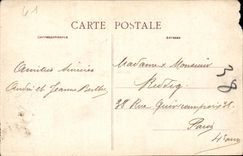 61
CARTE POSTALE
CORRESPONDANCE
ADRESSE
Amitiés sincères
André et Jeanne
Madame & Monsieur
Reddig
28 Rue Quincampoix
Paris
4e
38